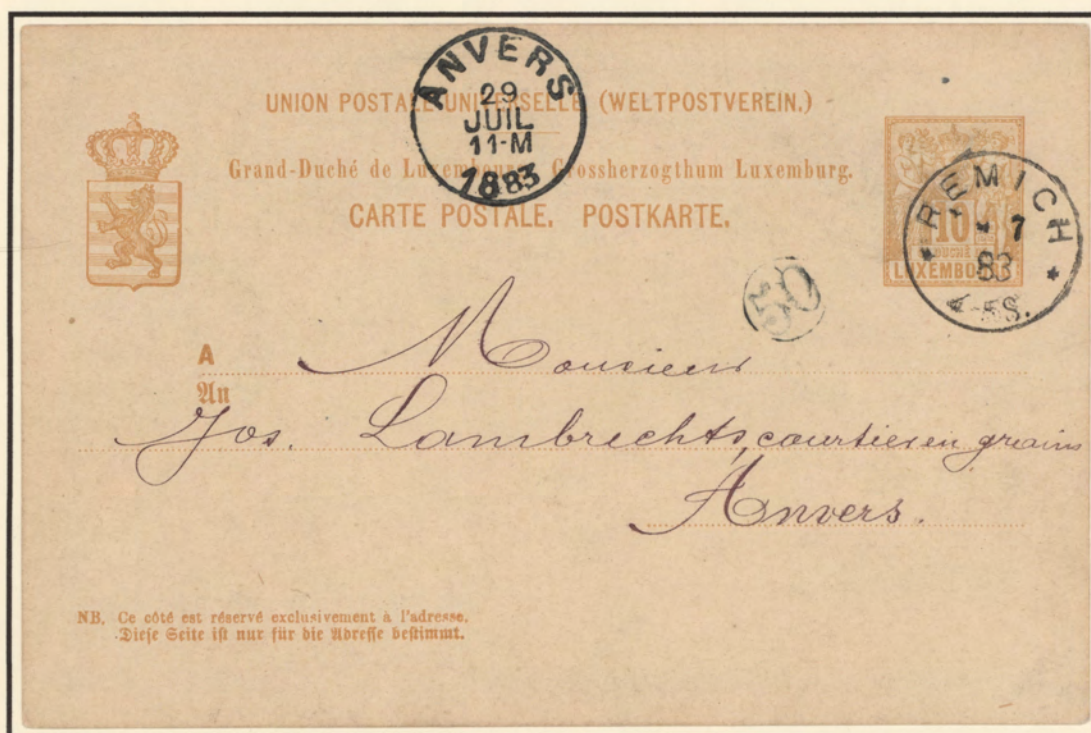 UNION POSTALE UNIVERSELLE (WELTPOSTVEREIN.)
Grand-Duché de Luxembourg. Grossherzogthum Luxemburg.
CARTE POSTALE. POSTKARTE.
ANVERS
29
JUIL
11-M
1883
10
LUXEMBOURG
REMICH
7
83
4-5S.
50
A
An
Monsieur
Jos. Lambrechts, courtier en grains
Anvers.
NB. Ce côté est réservé exclusivement à l'adresse.
Diese Seite ist nur für die Adresse bestimmt.